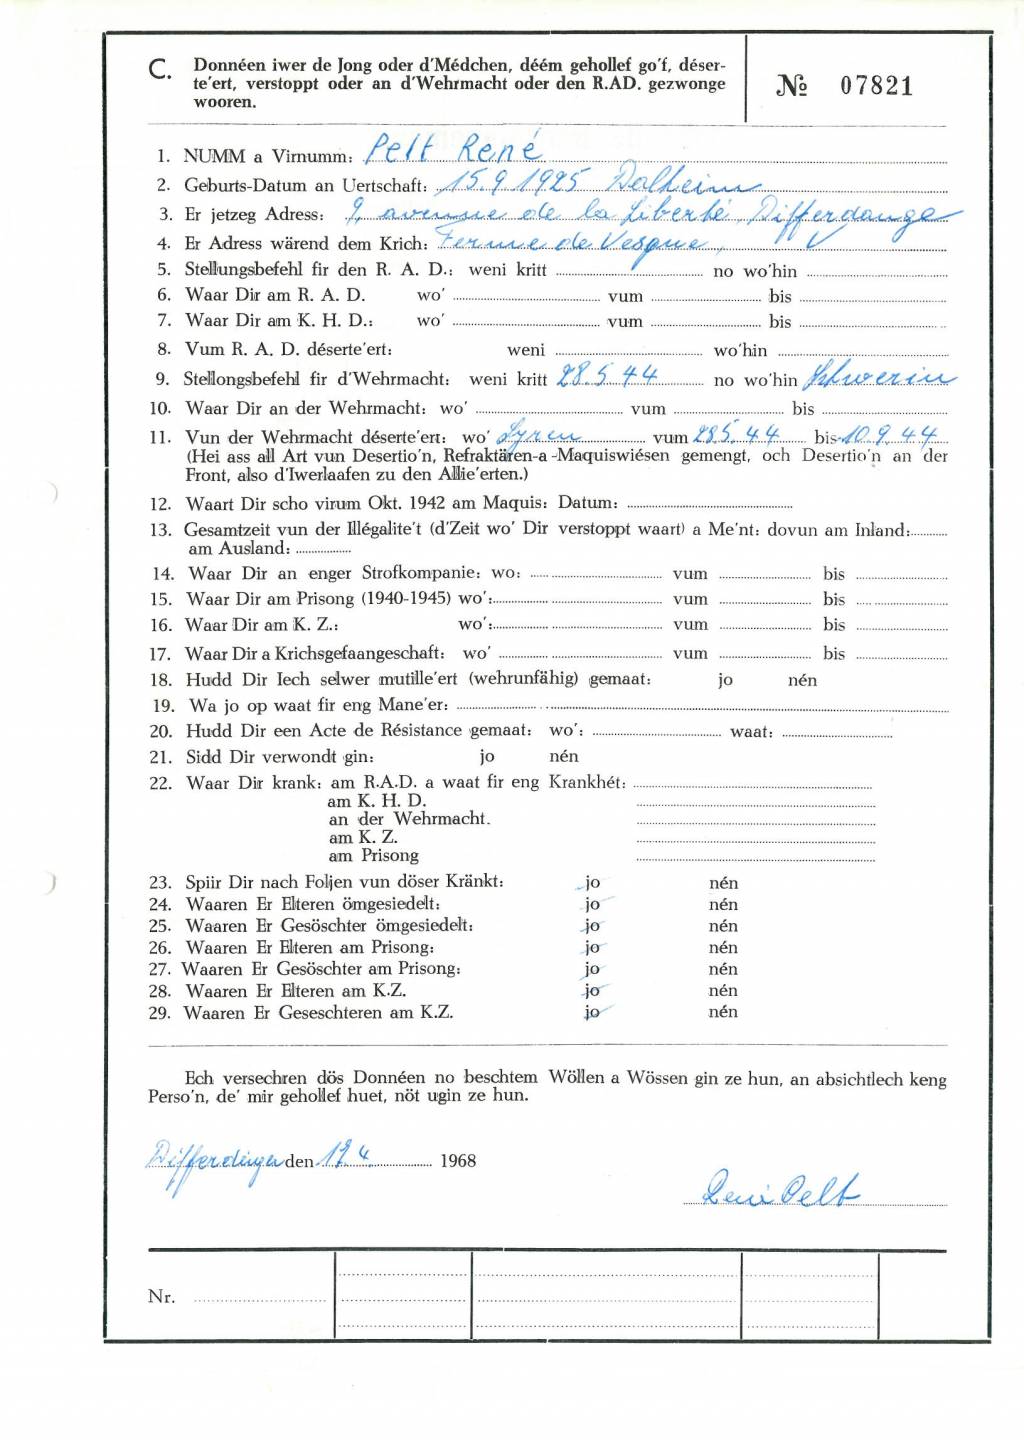 C. Donnéen iwer de Jong oder d'Médchen, déém gehollef go'f, déser-
te'ert, verstoppt oder an d'Wehrmacht oder den R.AD. gezwonge
wooren.
№ 07821
1. NUMM a Virnumm: Pelt René
2. Geburts-Datum an Uertschaft: 15.9.1925 Dalheim
3. Er jetzeg Adress: 9, avenue de la Liberté, Differdange
4. Er Adress wärend dem Krich: Ferme de Vesque,
5. Stellungsbefehl fir den R. A. D.: weni kritt no wo'hin
6. Waar Dir am R. A. D. wo' vum bis
7. Waar Dir am K. H. D.: wo' vum bis
8. Vum R. A. D. déserte'ert: weni wo'hin
9. Stellongsbefehl fir d'Wehrmacht: weni kritt 28.5.44 no wo'hin Schwerin
10. Waar Dir an der Wehrmacht: wo' vum bis
11. Vun der Wehrmacht déserte'ert: wo' Syren vum 28.5.44 bis 10.9.44
(Hei ass all Art vun Desertio'n, Refraktären-a-Maquiswiésen gemengt, och Desertio'n an der
Front, also d'Iwerlaafen zu den Allie'erten.)
12. Waart Dir scho virum Okt. 1942 am Maquis: Datum:
13. Gesamtzeit vun der Illégalite't (d'Zeit wo' Dir verstoppt waart) a Me'nt: dovun am Inland:
am Ausland:
14. Waar Dir an enger Strofkompanie: wo: vum bis
15. Waar Dir am Prisong (1940-1945) wo': vum bis
16. Waar Dir am K. Z.: wo': vum bis
17. Waar Dir a Krichsgefaangeschaft: wo' vum bis
18. Hudd Dir Iech selwer mutille'ert (wehrunfähig) gemaat: jo nén
19. Wa jo op waat fir eng Mane'er:
20. Hudd Dir een Acte de Résistance gemaat: wo': waat:
21. Sidd Dir verwondt gin: jo nén
22. Waar Dir krank: am R.A.D. a waat fir eng Krankhét:
am K. H. D.
an der Wehrmacht.
am K. Z.
am Prisong
23. Spiir Dir nach Foljen vun döser Kränkt: jo nén
24. Waaren Er Elteren ömgesiedelt: jo nén
25. Waaren Er Gesöschter ömgesiedelt: jo nén
26. Waaren Er Elteren am Prisong: jo nén
27. Waaren Er Gesöschter am Prisong: jo nén
28. Waaren Er Elteren am K.Z. jo nén
29. Waaren Er Geseschteren am K.Z. jo nén
Ech versechren dös Donnéen no beschtem Wöllen a Wössen gin ze hun, an absichtlech keng
Perso'n, de' mir gehollef huet, nöt ugin ze hun.
Differdingen den 19.4. 1968
René Pelt
Nr.